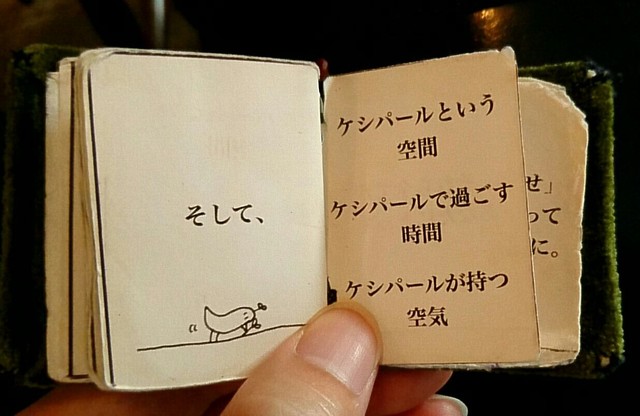 そして、
ケシパールという
空間
ケシパールで過ごす
時間
ケシパールが持つ
空気
せ」
って
に。